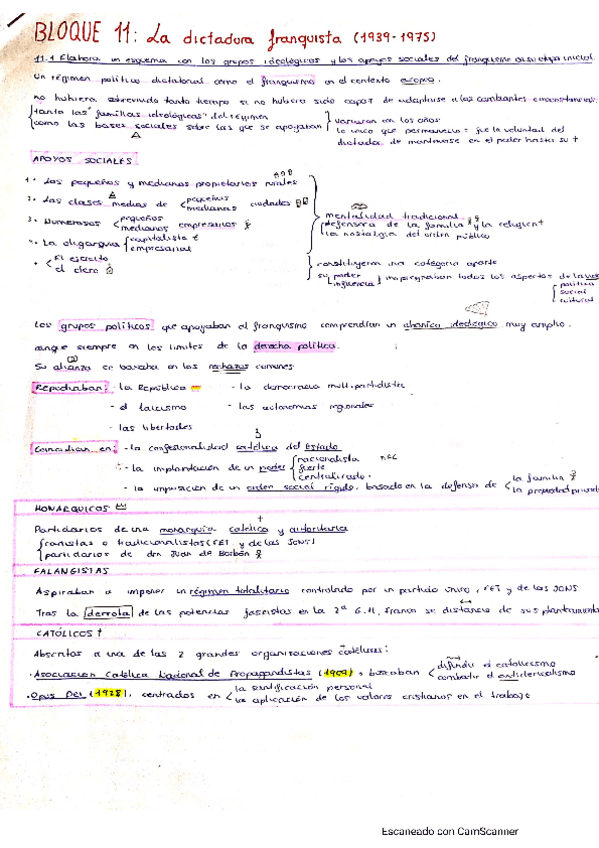 BLOQUE 11: La dictadura franquista (1939-1975)
11.1 Elabora un esquema con los grupos ideológicos y los apoyos sociales del franquismo en su etapa inicial.
Un régimen político dictatorial como el franquismo en el contexto europeo
no hubiera sobrevivido tanto tiempo si no hubiera sido capaz de adaptarse a las cambiantes circunstancias:
tanto las "familias ideológicas" del régimen
como las bases sociales sobre las que se apoyaban
variaron con los años
lo único que permaneció = fue la voluntad del
dictador de mantenerse en el poder hasta su †
APOYOS SOCIALES
1. Los pequeños y medianos propietarios rurales
2. Las clases medias de pequeñas
medianas ciudades
3. Numerosos pequeños
medianos empresarios
4. La oligarquía capitalista
empresarial
mentalidad tradicional
defensora de la familia y la religión
la nostalgia del orden público
+ El ejército
el clero
constituyeron una categoría aparte
su poder
influencia impregnaban todos los aspectos de la
política
social
cultural
Los grupos políticos que apoyaban el franquismo comprendían un abanico ideológico muy amplio,
aunque siempre en los límites de la derecha política.
Su alianza se basaba en los rechazos comunes
Repudiaban: - la República - la democracia multipartidista
- el laicismo - las autonomías regionales
- las libertades
Coincidían en: - la confesionalidad católica del Estado
- la implantación de un poder nacionalista
fuerte
centralizado
- la imposición de un orden social rígido, basado en la defensa de la familia
la propiedad privada
MONÁRQUICOS
Partidarios de una monarquía católica y autoritaria
carlistas o tradicionalistas (FET y de las JONS)
partidarios de don Juan de Borbón
FALANGISTAS
Aspiraban a imponer un régimen totalitario controlado por un partido único, FET y de las JONS
Tras la derrota de las potencias fascistas en la 2ª G.M, Franco se distancia de sus planteamientos
CATÓLICOS †
Adscritos a una de las 2 grandes organizaciones católicas:
· Asociación Católica Nacional de Propagandistas (1909), buscaban difundir el catolicismo
combatir el anticlericalismo
· Opus Dei (1928), centrados en la santificación personal
la aplicación de los valores cristianos en el trabajo
Escaneado con CamScanner